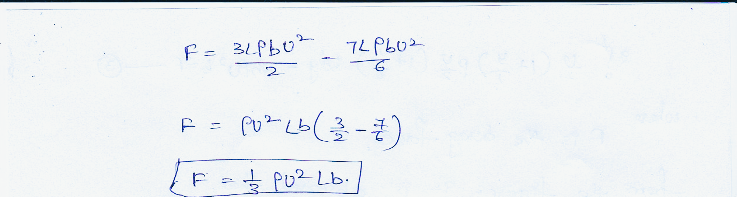 F = 3LρbU²/2 - 7LρbU²/6
F = ρU² Lb(3/2 - 7/6)
F = 1/3 ρU² Lb.